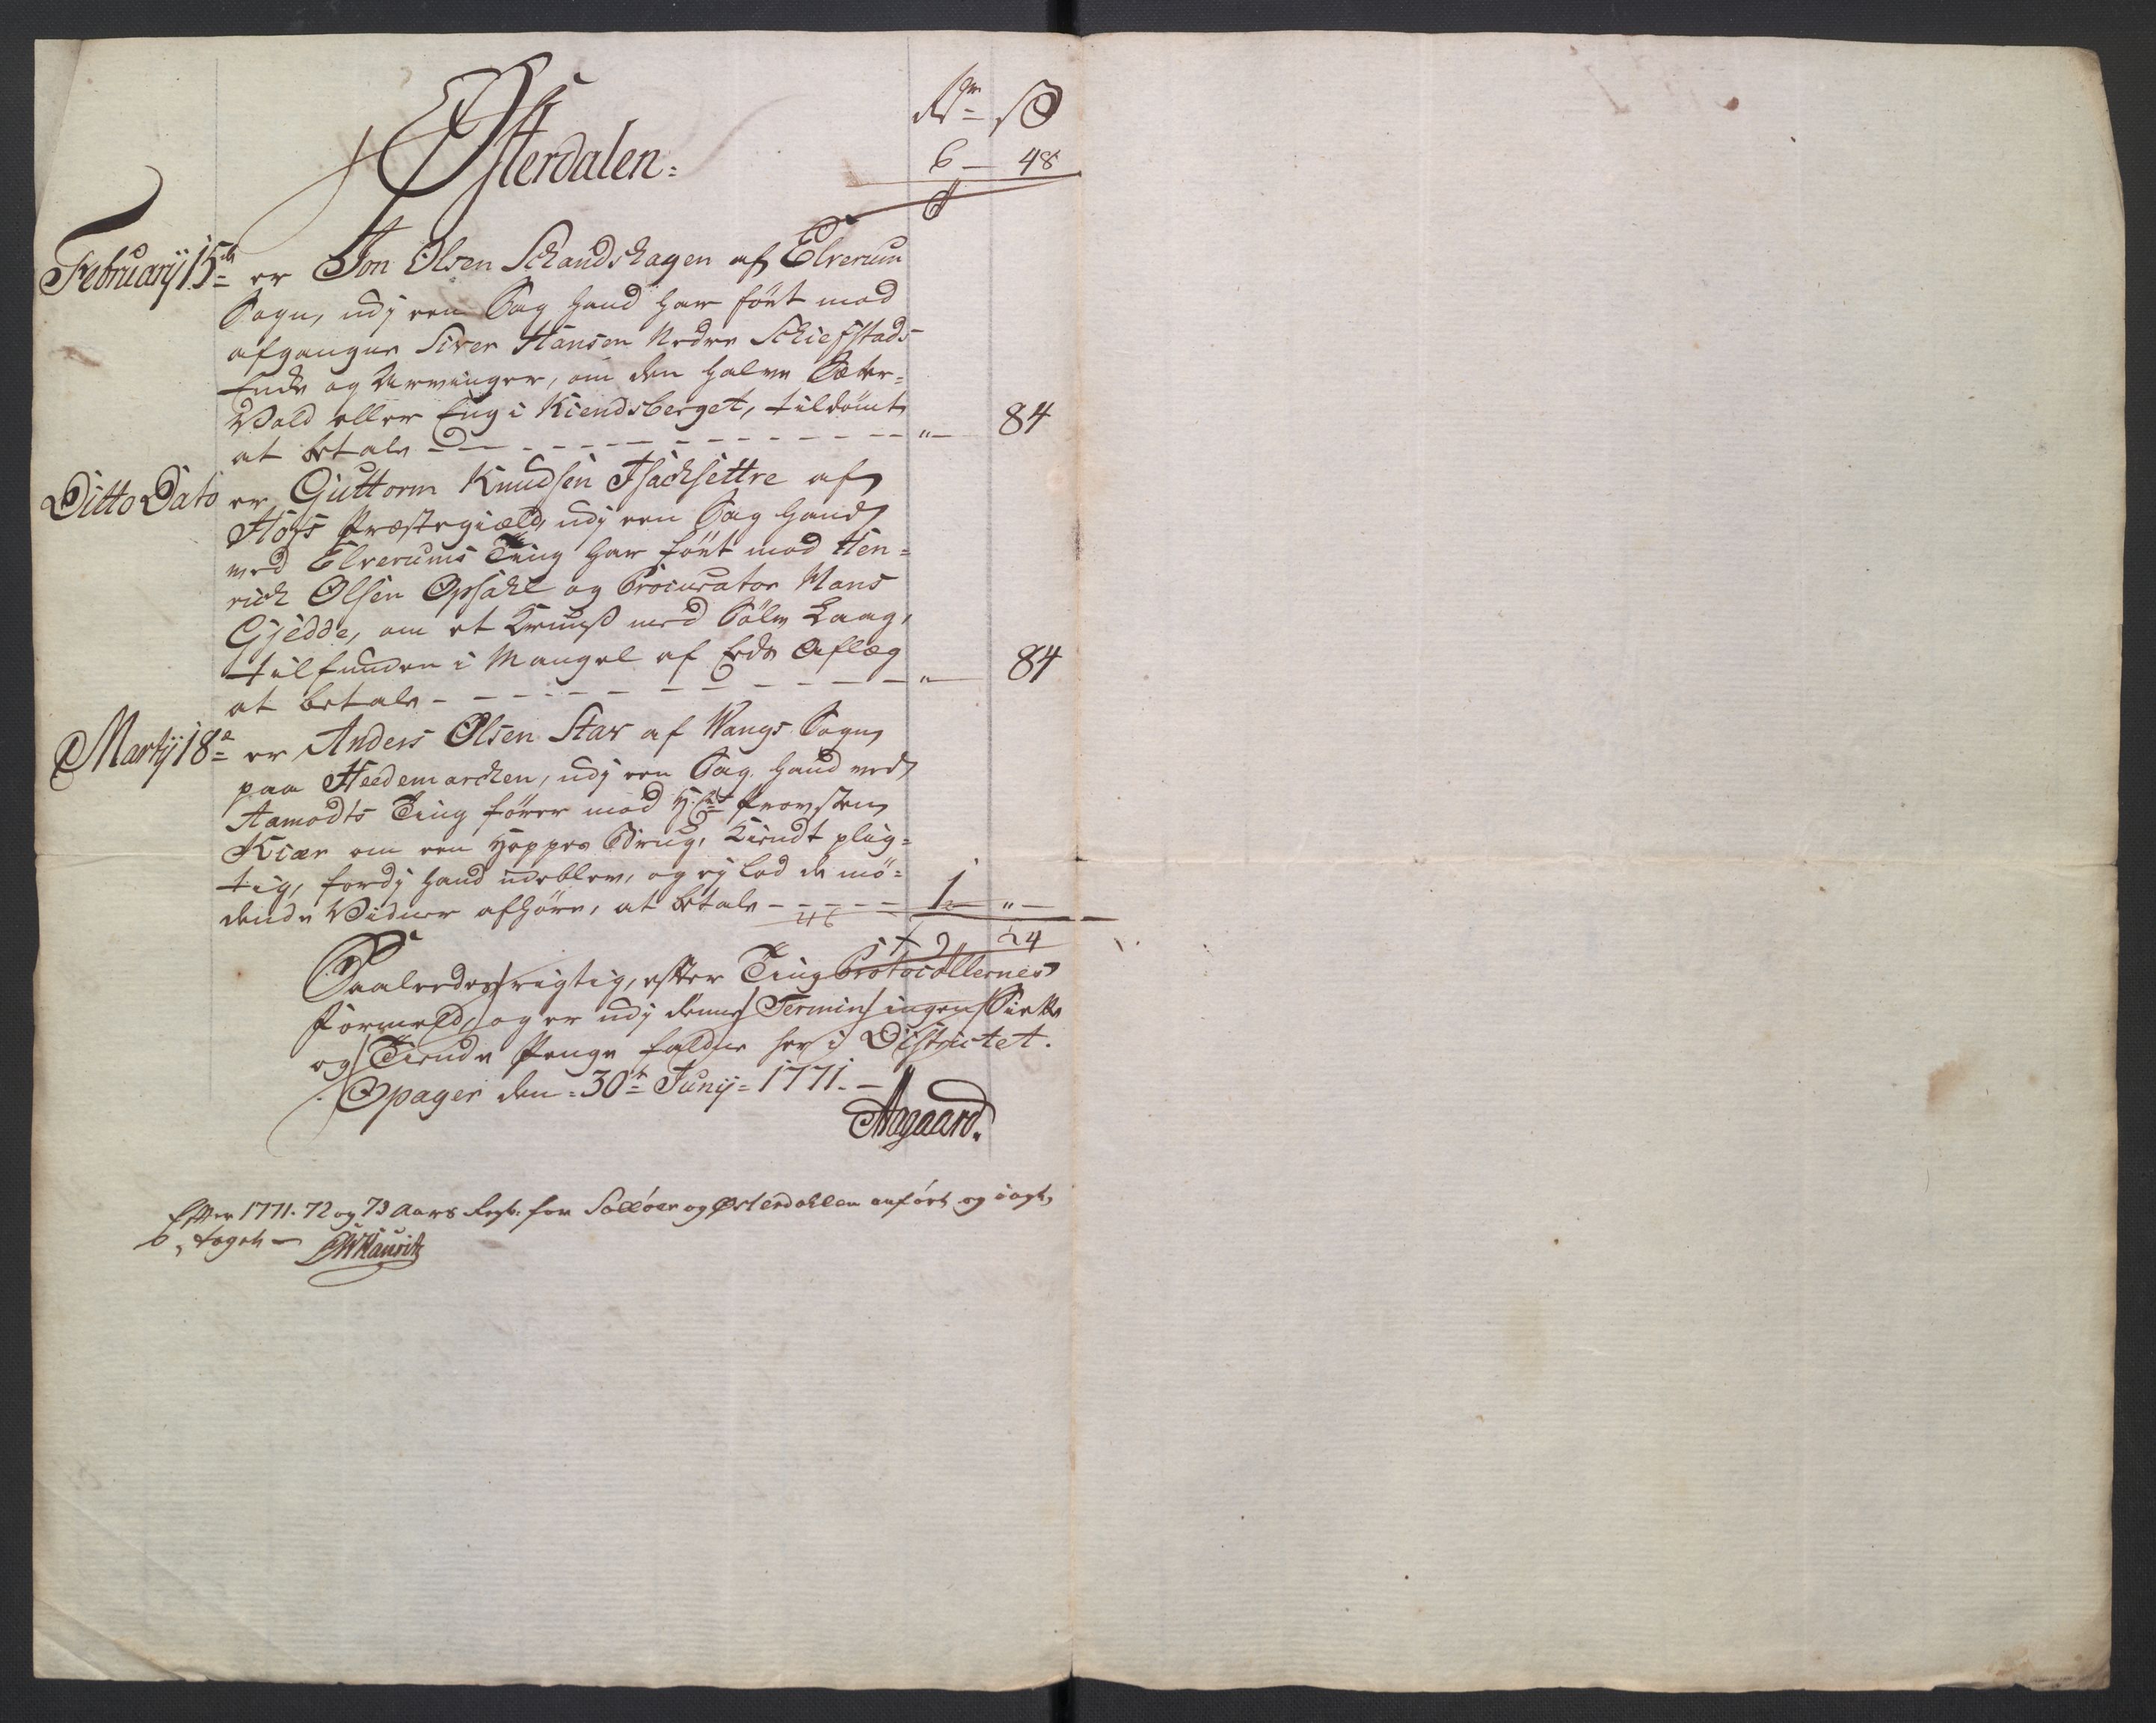 Østerdalen=
Rdr ß
6 — 48
Februarij 15de er Jon Olsen Schandshagen af Elverum
Sogn, udj een Sag hand har ført mod
afgangne Siver Hansen Nedre Schiefstads
Enke og Arvinger, om den halve Sæter-
Vold eller Eng i Kiendsberget, tildømt
at betale - - - - - - - " — 84
Ditto Dato er Guttorm Knudsen Isachsettre af
Hofs Præstegiæld, udj een Sag hand
ved Elverums Ting har ført mod Hen=
rich Olsen Opsahl og Procurator Mans
Gjedde, om et Kruus med Sølv Laag,
tilfunden i Mangel af Eeds Aflæg
at betale - - - - - - - " — 84
Martij 18de er Anders Olsen Star af Vangs Sogn
paa Heedemarchen, udj een Sag hand ved
Aamodts Ting fører mod Hr Provsten
Kiær om een Hoppes Brug, kiendt plig=
tig, fordj hand udeblev, og ej lod de mø=
dende Vidner afhøre, at betale - - - - - 1 — " —
9 24
Saaledes rigtig, efter Ting Protocollernes
Formeld, og er udj denne Termin ingen Siette
og Tiende Penge faldne her i Districtet.
Opager den = 30te Junij = 1771. —
Aagaard.
Efter 1771. 72 og 73 Aars Regb. for Solløer og Østerdahlen anført og iagt,
tagen —